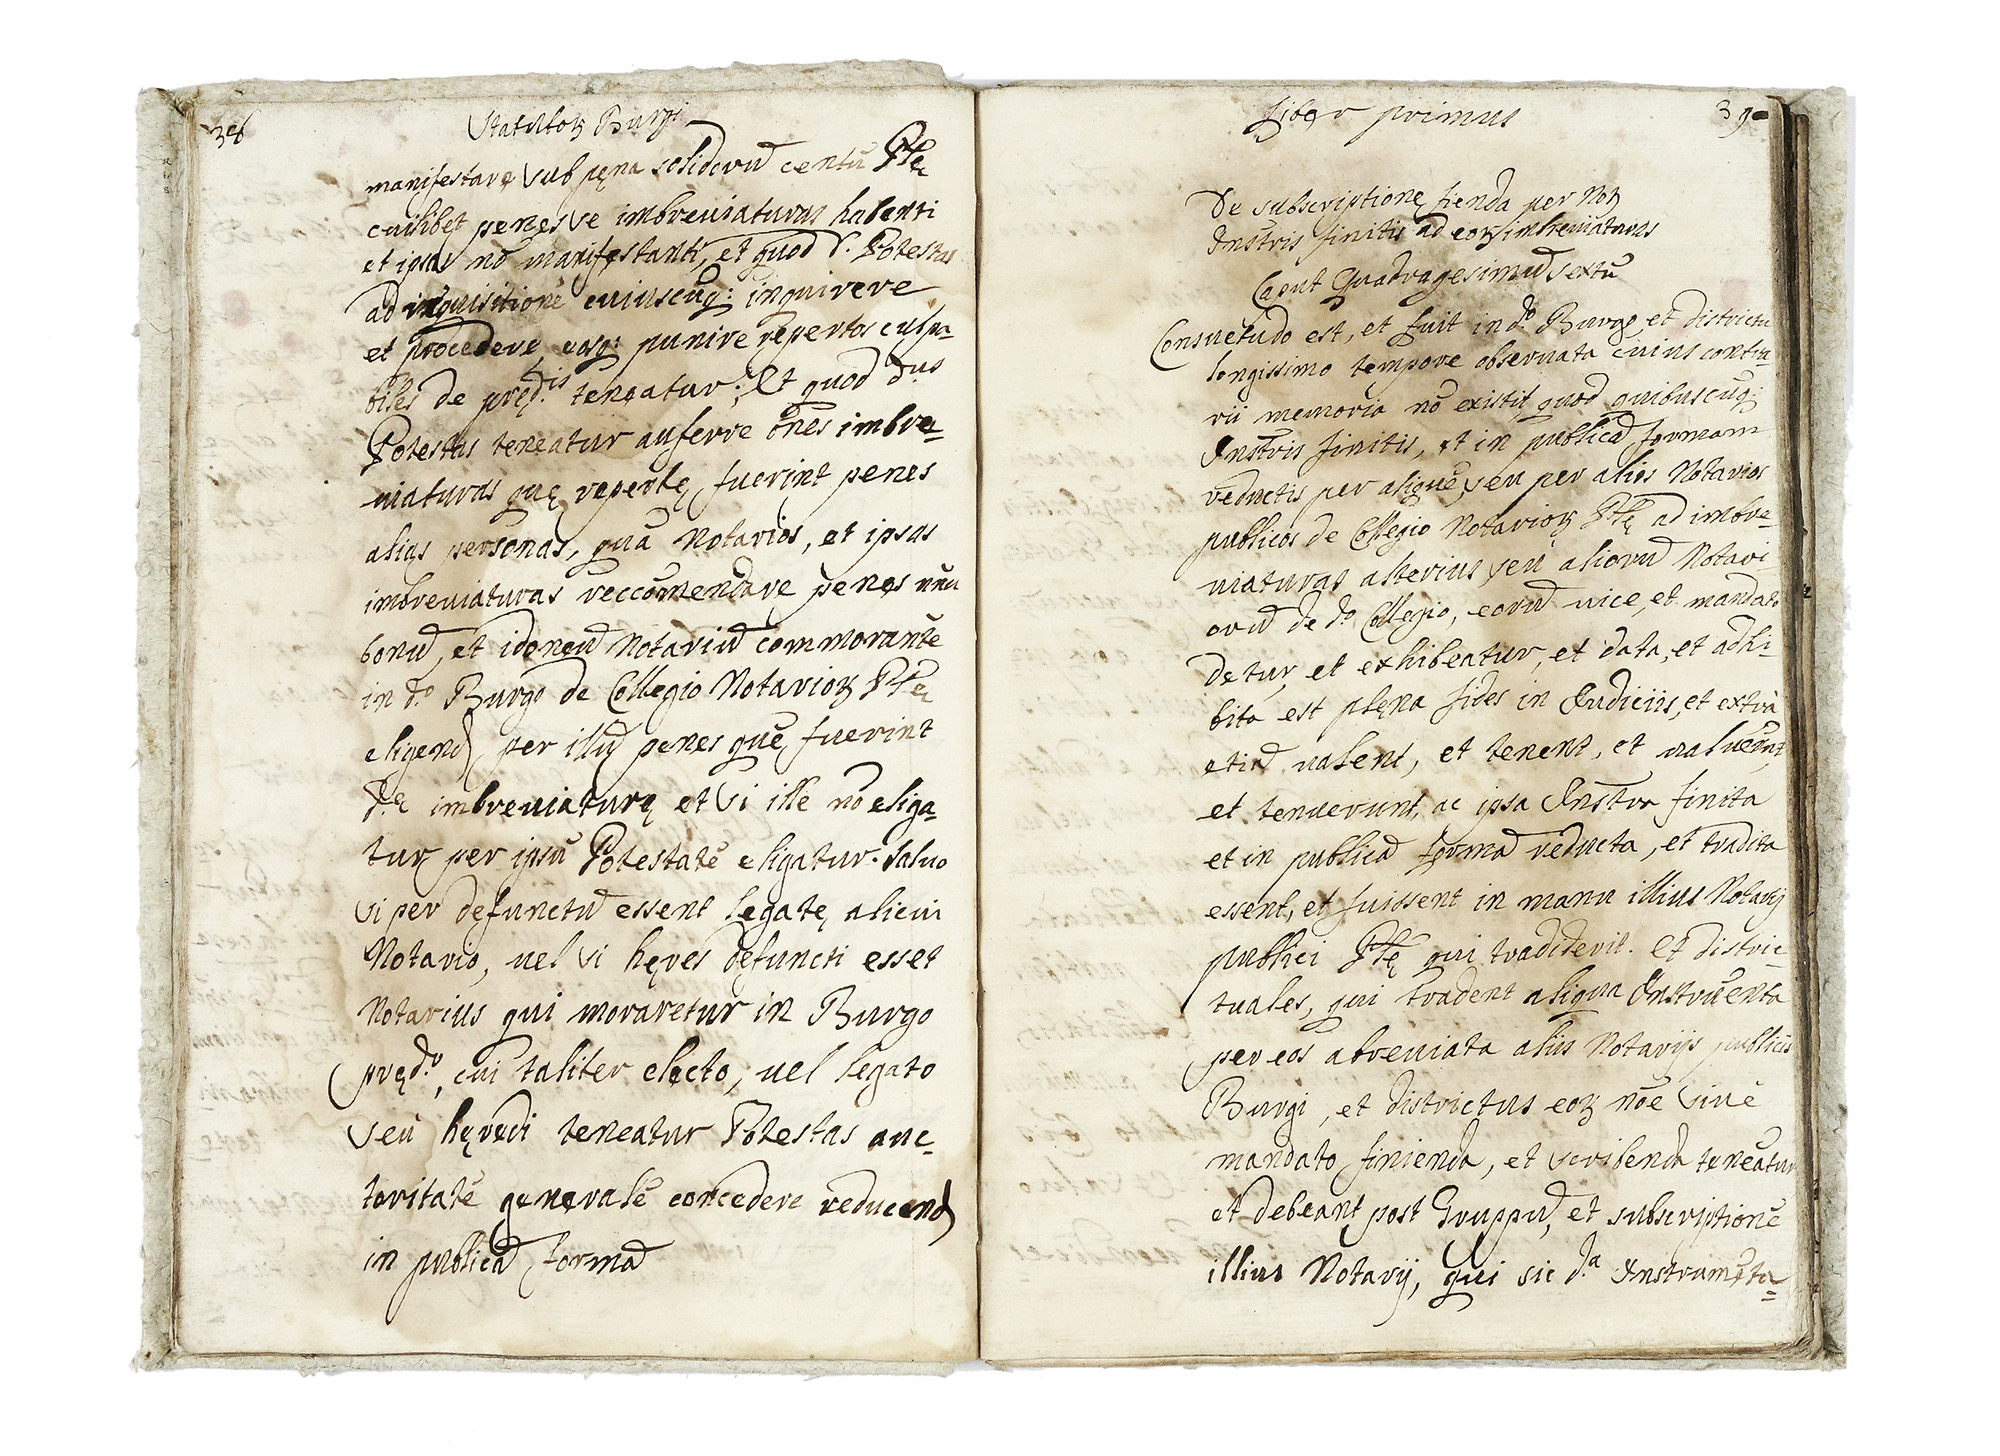 38
Statutoꝝ Burgi
manifestare sub pęna solidorũ centũ Pñę
cuilibet penes se imbreuiaturas habenti
et ipsas nõ manifestanti, et quod D. Potestas
ad inquisitionẽ cuiuscuq: inquirere
et procedere, eosq: punire repertos culpa-
biles de pręd.is teneatur; Et quod d.us
Potestas teneatur auferre oñes imbre-
uiaturas quę repertę fuerint penes
alias personas, quã Notarios, et ipsas
imbreuiaturas reccomendare penes unũ
bonũ, et idoneũ Notariũ commorantẽ
in d.o Burgo de Collegio Notarioꝝ Pñę
eligend, per illũ penes quẽ fuerint
d.ę imbreuiaturę et si ille nõ eliga-
tur per ipsũ Potestatẽ eligatur. Saluo
si per defunctũ essent legatę alicui
Notario, uel si hęres defuncti esset
Notarius qui moraretur in Burgo
pręd.o, cui taliter electo, uel legato
seu hęredi teneatur Potestas auc-
toritatẽ generalẽ concedere reducend
in publicã formã
Liber primus
39
De subscriptione fienda per Noꝝ
Instris finitis ad eoꝝ imbreuiaturas
Caput Quadragesimũ sextũ
Consuetudo est, et fuit in d.o Burgo, et districtu
longissimo tempore obseruata cuius contra-
rii memoria nõ existit, quod quibuscuq:
Instris finitis, et in publicã formam
reductis per aliquẽ, seu per alios Notarios
publicos de Collegio Notarioꝝ Pñę ad imbre-
uiaturas alterius, seu aliorũ Notari-
orũ de d.o Collegio, eorũ uice, et mandato
detur, et exhibeatur, et data, et adhi-
bita est plęna fides in Iudiciis, et extrà
etiã ualent, et tenent, et ualuerũt,
et tenuerunt, ac ipsa Instra finita
et in publicã formã reducta, et tradita
essent, et fuissent in manu illius Notarij
publici Pñę qui tradiderit. Et distric-
tuales, qui tradent aliqua Instruẽnta
per eos abreuiata aliis Notarijs publicis
Burgi, et districtus eoꝝ nõe siuẽ
mandato finienda, et scribenda teneãtur
et debeant post Gruppũ, et subscriptionẽ
illius Notarij, qui sic d.a Instrumẽta-